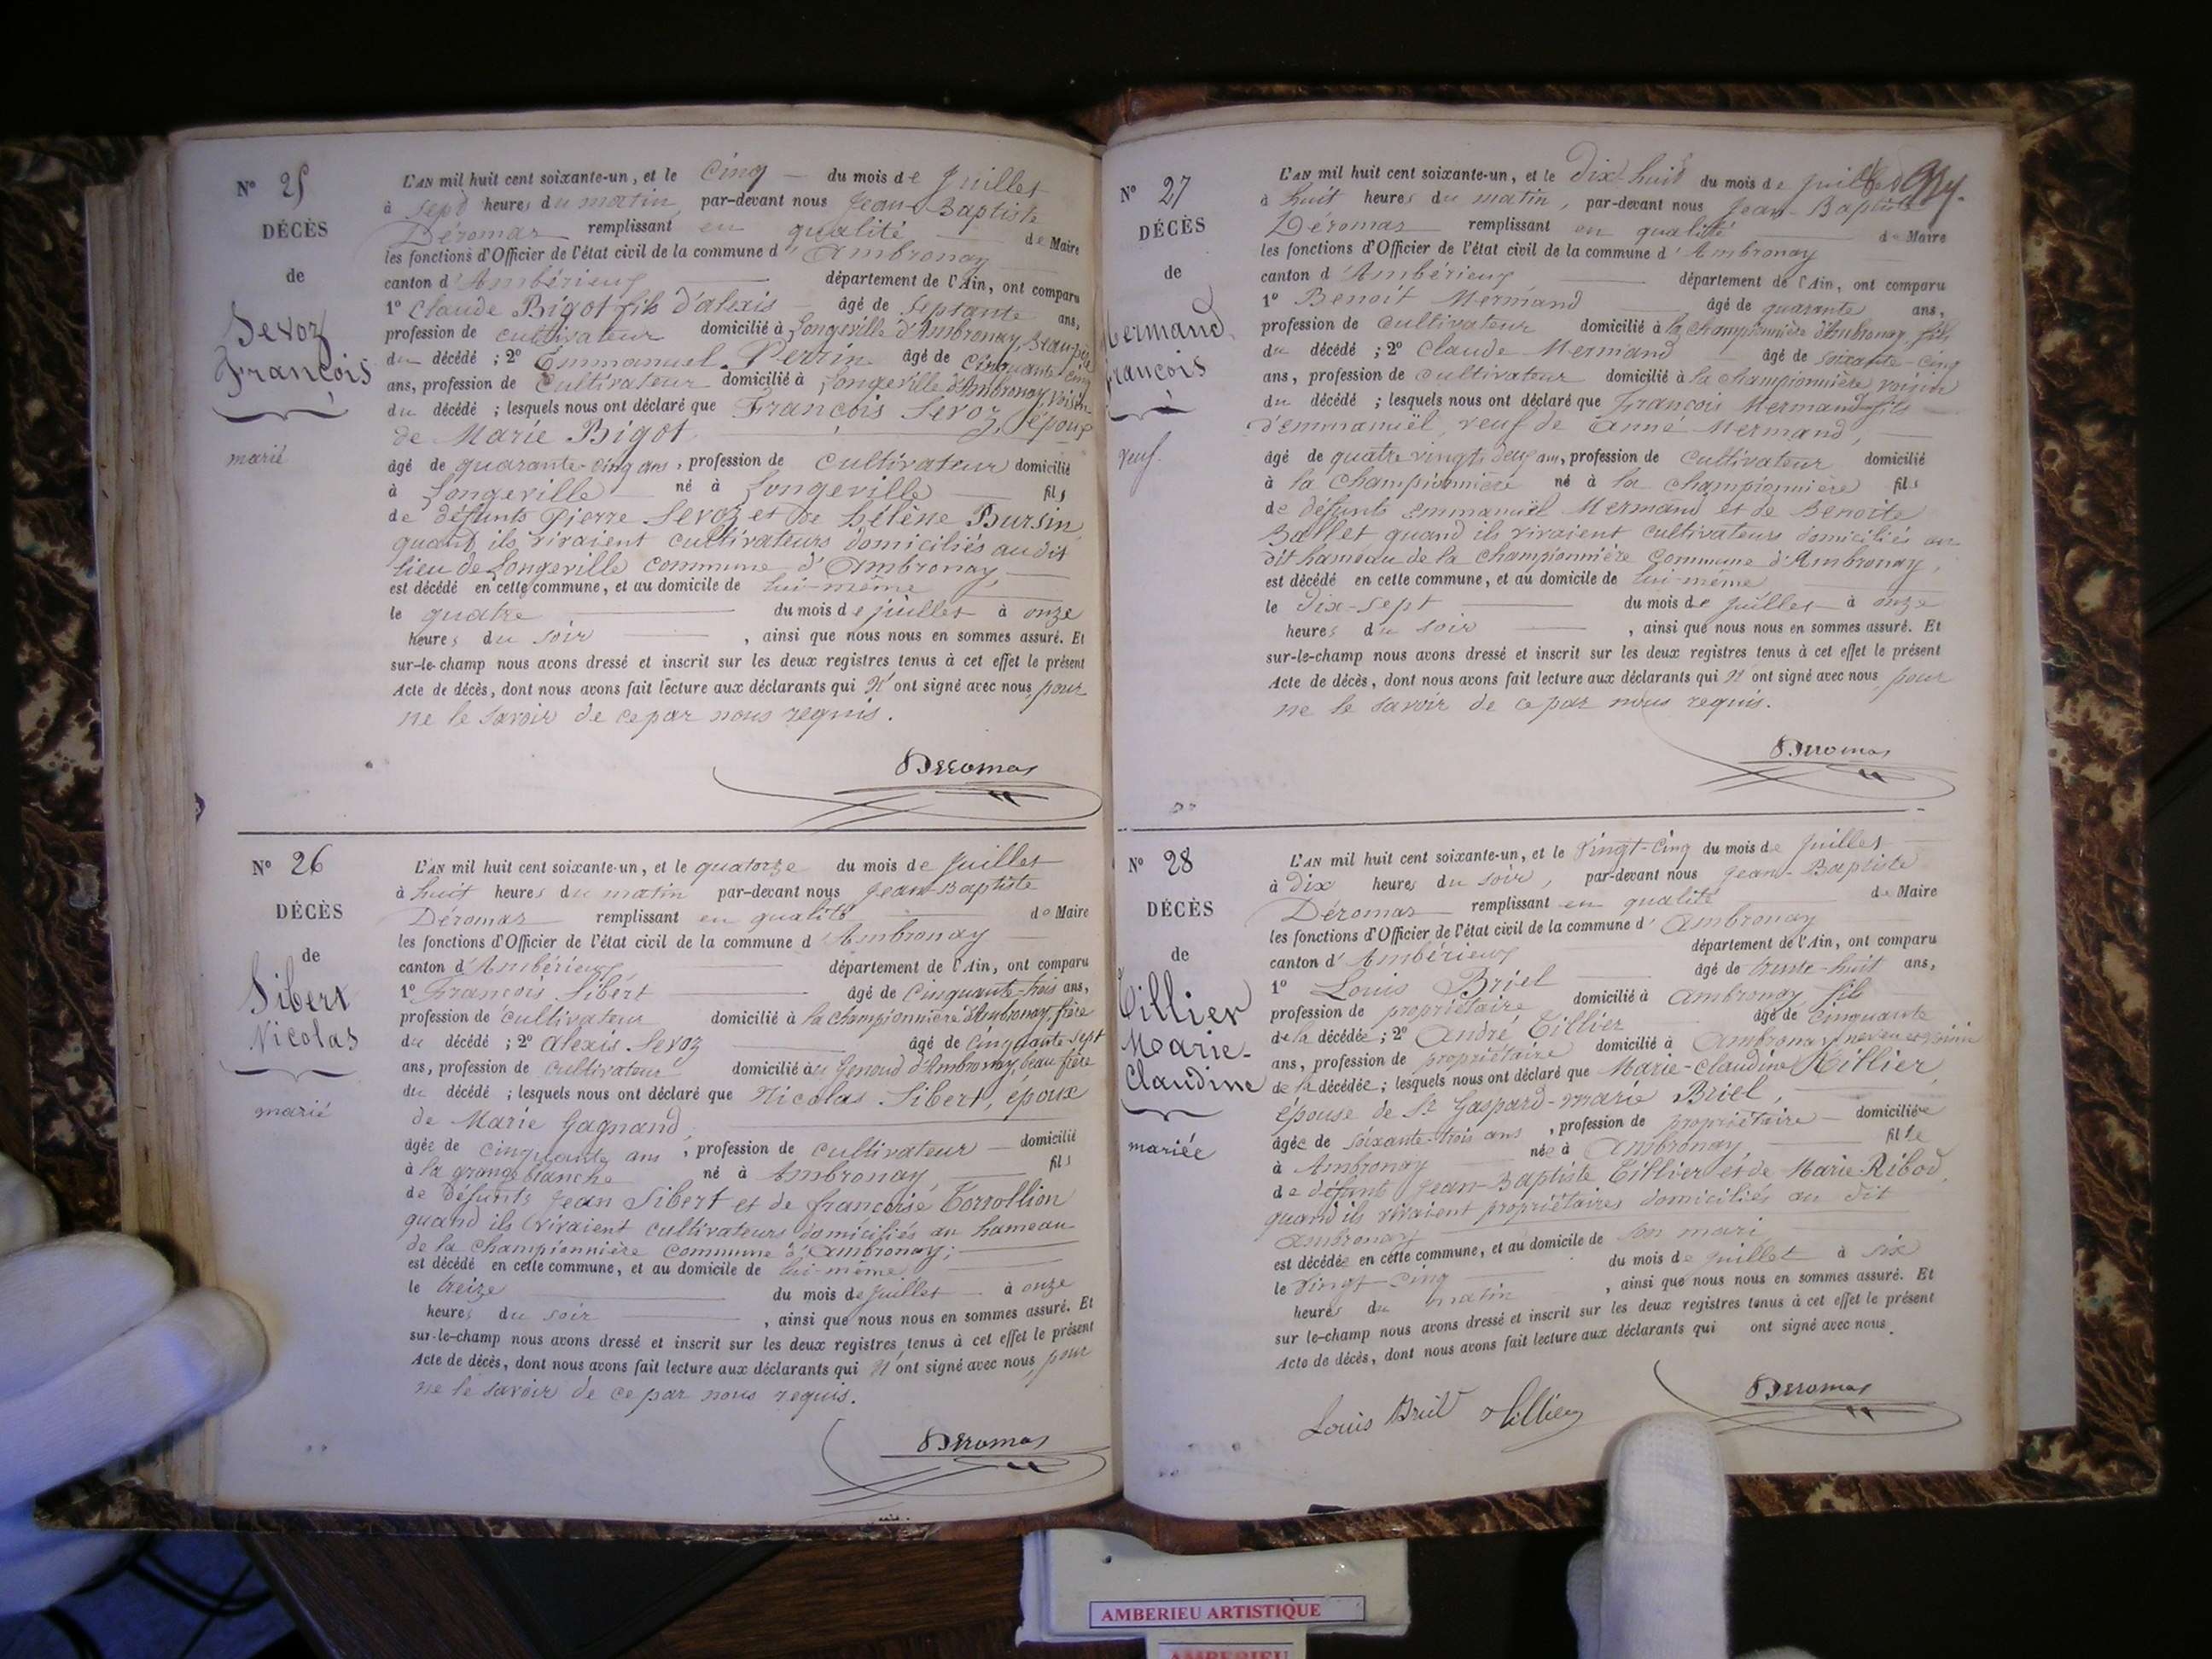 N° 25
DÉCÈS
de
Sevoz
François
marié
L'AN mil huit cent soixante-un, et le Cinq du mois de Juillet
à sept heures du matin, par-devant nous Jean-Baptiste
Déromas remplissant en qualité de Maire
les fonctions d'Officier de l'état civil de la commune d'Ambronay
canton d'Ambérieux département de l'Ain, ont comparu
1° Claude Bigot fils d'alexis âgé de Septante ans,
profession de cultivateur domicilié à Longeville d'Ambronay, beau-père
du décédé ; 2° Emmanuel Perrin âgé de cinquante cinq
ans, profession de Cultivateur domicilié à Longeville d'Ambronay, voisin
du décédé ; lesquels nous ont déclaré que François Sevoz, l'époux
de Marie Bigot,
âgé de quarante-cinq ans, profession de cultivateur domicilié
à Longeville né à Longeville fils
de défunts Pierre Sevoz et de hélène Bursin
quand ils vivaient cultivateurs domiciliés au dit
lieu de Longeville commune d'Ambronay,
est décédé en cette commune, et au domicile de lui-même
le quatre du mois de juillet à onze
heures du soir, ainsi que nous nous en sommes assuré. Et
sur-le-champ nous avons dressé et inscrit sur les deux registres tenus à cet effet le présent
Acte de décès, dont nous avons fait lecture aux déclarants qui N'ont signé avec nous, pour
ne le savoir de ce par nous requis.
Deromas
N° 26
DÉCÈS
de
Sibert
Nicolas
marié
L'AN mil huit cent soixante-un, et le quatorze du mois de Juillet
à huit heures du matin par-devant nous Jean-Baptiste
Déromas remplissant en qualité de Maire
les fonctions d'Officier de l'état civil de la commune d'Ambronay
canton d'Ambérieux département de l'Ain, ont comparu
1° François Sibert âgé de Cinquante-trois ans,
profession de cultivateur domicilié à la championnière d'Ambronay, frère
du décédé ; 2° alexis Sevoz âgé de cinquante-sept
ans, profession de cultivateur domicilié au Genoud d'Ambronay, beau frère
du décédé ; lesquels nous ont déclaré que Nicolas Sibert, époux
de Marie Gagnand,
âgée de cinquante ans, profession de cultivateur domicilié
à la grange blanche né à Ambronay, fils
de Défunts Jean Sibert et de françoise Torrollion
quand ils vivaient cultivateurs domiciliés au hameau
de la championnière commune d'Ambronay;
est décédé en cette commune, et au domicile de lui-même
le treize du mois de juillet à onze
heures du soir, ainsi que nous nous en sommes assuré. Et
sur-le-champ nous avons dressé et inscrit sur les deux registres tenus à cet effet le présent
Acte de décès, dont nous avons fait lecture aux déclarants qui N'ont signé avec nous, pour
ne le savoir de ce par nous requis.
Deromas
N° 27
DÉCÈS
de
Mermand
François
veuf.
L'AN mil huit cent soixante-un, et le Dix-huit du mois de juillet
à huit heures du matin, par-devant nous Jean-Baptiste
Déromas remplissant en qualité de Maire
les fonctions d'Officier de l'état civil de la commune d'Ambronay
canton d'Ambérieux département de l'Ain, ont comparu
1° Benoit Mermand âgé de quarante ans,
profession de cultivateur domicilié à la championnière d'Ambronay, fils
du décédé ; 2° Claude Mermand âgé de soixante-cinq
ans, profession de cultivateur domicilié à la championnière voisin
du décédé ; lesquels nous ont déclaré que François Mermand fils
d'emmanuël, veuf de Anne Mermand,
âgé de quatre vingt deux ans, profession de cultivateur domicilié
à la championnière né à la championnière fils
de défunts emmanuël Mermand et de Benoite
Ballet quand ils vivaient cultivateurs domiciliés au
dit hameau de la championnière Commune d'Ambronay,
est décédé en cette commune, et au domicile de lui-même
le Dix-sept du mois de juillet à onze
heures du soir, ainsi que nous nous en sommes assuré. Et
sur-le-champ nous avons dressé et inscrit sur les deux registres tenus à cet effet le présent
Acte de décès, dont nous avons fait lecture aux déclarants qui N'ont signé avec nous, pour
ne le savoir de ce par nous requis.
Deromas
N° 28
DÉCÈS
de
Tillier
Marie-
Claudine
mariée
L'AN mil huit cent soixante-un, et le Vingt-Cinq du mois de juillet
à Dix heures du soir, par-devant nous Jean-Baptiste
Déromas remplissant en qualité de Maire
les fonctions d'Officier de l'état civil de la commune d'Ambronay
canton d'Ambérieux département de l'Ain, ont comparu
1° Louis Briel âgé de trente-huit ans,
profession de propriétaire domicilié à Ambronay fils
de la décédée ; 2° André Tillier âgé de cinquante
ans, profession de propriétaire domicilié à Ambronay neveu et voisin
de la décédée ; lesquels nous ont déclaré que Marie-Claudine Tillier
épouse de Sr Gaspard-marie Briel,
âgée de soixante-trois ans, profession de propriétaire domiciliée
à Ambronay née à Ambronay fille
de défunts Jean-Baptiste Tillier et de Marie Ribod,
quand ils vivaient propriétaires domiciliés au dit
Ambronay
est décédée en cette commune, et au domicile de son mari
le Vingt-Cinq du mois de juillet à six
heures du matin, ainsi que nous nous en sommes assuré. Et
sur le-champ nous avons dressé et inscrit sur les deux registres tenus à cet effet le présent
Acte de décès, dont nous avons fait lecture aux déclarants qui ont signé avec nous.
Louis Briel Tillier Deromas
AMBERIEU ARTISTIQUE
AMBERIEU